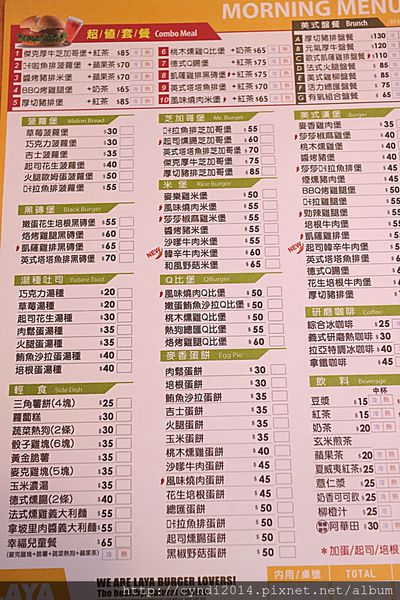 MORNING MENU
超/值/套/餐 Combo Meal
1 傑克厚牛芝加哥堡 +紅茶 $85
2 咔啦魚排菠蘿堡 +蘋果茶 $70
3 醬烤豬排米堡 +紅茶 $70
4 BBQ烤雞堡 +奶茶 $65
5 厚切豬排堡 +紅茶 $65
6 桃木燻雞Q比堡 +奶茶 $65
7 德式Q腸堡 +紅茶 $75
8 凱薩雞排黑磚堡 +紅茶 $75
9 英式塔塔魚排芝加哥堡 +紅茶 $75
10 風味燒肉米堡 +紅茶 $65
菠蘿堡 Melon Bread
草莓菠蘿堡 $30
巧克力菠蘿堡 $30
吉士菠蘿堡 $35
起司花生菠蘿堡 $40
火腿歐姆蛋菠蘿堡 $50
咔拉魚排菠蘿堡 $55
黑磚堡 Black Burger
嫩蛋花生培根黑磚堡 $55
烙烤雞腿黑磚堡 $60
凱薩雞排黑磚堡 $65
英式塔塔魚排黑磚堡 $70
湯種吐司 Yudane Toast
巧克力湯種 $20
草莓湯種 $20
起司花生湯種 $30
肉鬆蛋湯種 $35
火腿蛋湯種 $35
鮪魚沙拉蛋湯種 $40
培根蛋湯種 $40
輕食 Side Dish
三角薯餅(4塊) $25
蘿蔔糕 $30
蔬菜熱狗(2條) $30
骰子雞塊(6塊) $35
黃金脆薯 $35
麥克雞塊(5塊) $35
玉米濃湯 $35
德式燻腸(2條) $40
法式燻雞義大利麵 $55
拿坡里肉醬義大利麵 $55
幸福兒童餐 $65
(麥克雞塊+脆薯+蔬菜熱狗+蘋果茶)
芝加哥堡 Mr. Burger
咔拉魚排芝加哥堡 $55
起司燻腸芝加哥堡 $60
英式塔塔魚排芝加哥堡 $70
傑克厚牛芝加哥堡 $75
厚切豬排芝加哥堡 $85
米堡 Rice Burger
麥樂雞米堡 $50
風味燒肉米堡 $55
莎莎椒麻雞米堡 $55
醬烤豬米堡 $55
沙嗲牛肉米堡 $60
NEW
韓辛牛肉米堡 $60
和風野菇米堡 $65
Q比堡 QBurger
風味燒肉Q比堡 $50
嫩蛋鮪魚沙拉Q比堡 $50
桃木燻雞Q比堡 $50
熱狗總匯Q比堡 $55
烙烤雞腿Q比堡 $60
麥香蛋餅 Egg Pie
肉鬆蛋餅 $30
培根蛋餅 $30
鮪魚沙拉蛋餅 $35
吉士蛋餅 $35
火腿蛋餅 $35
玉米蛋餅 $35
桃木燻雞蛋餅 $40
沙嗲牛肉蛋餅 $45
風味燒肉蛋餅 $45
花生培根蛋餅 $45
總匯蛋餅 $50
咔拉魚排蛋餅 $50
起司燻腸蛋餅 $50
黑椒野菇蛋餅 $60
美式盤餐 Brunch
A 厚切豬排盤餐 $130
B 元氣厚牛盤餐 $120
C 歐式凱薩雞排盤餐
D 法式火腿盤餐
E 美式雞柳盤餐
F 活力總匯盤餐
G 有氧組合盤餐
美式漢堡 Burger
麥香雞肉堡
莎莎椒麻雞堡
桃木燻雞堡
醬烤豬堡
英式塔塔雞排堡
煙燻豬肉堡
BBQ烤雞腿堡
咔拉雞腿堡
勁辣雞腿堡
培根牛肉堡
凱薩雞堡
NEW
起司韓辛牛肉堡
英式塔塔魚排堡
德式Q腸堡
花生培根牛肉堡
厚切豬排堡
研磨咖啡 Coffee
綜合冰咖啡 $25
義式研磨熱咖啡 $30
拉亞特調冰咖啡 $40
拿鐵咖啡 $45
飲料 Beverage
中杯
豆漿 $15
紅茶 $15
奶茶 $20
玄米煎茶
蘋果茶 $20
夏威夷紅茶 $25
薏仁漿 $25
奶香可可飲 $25
柳橙汁 $25
阿華田 $30
*加蛋/起司/培根
內用/桌號 TOTAL
WE ARE LAYA BURGER LOVERS!
http://cyndi2014.pixnet.net/blog